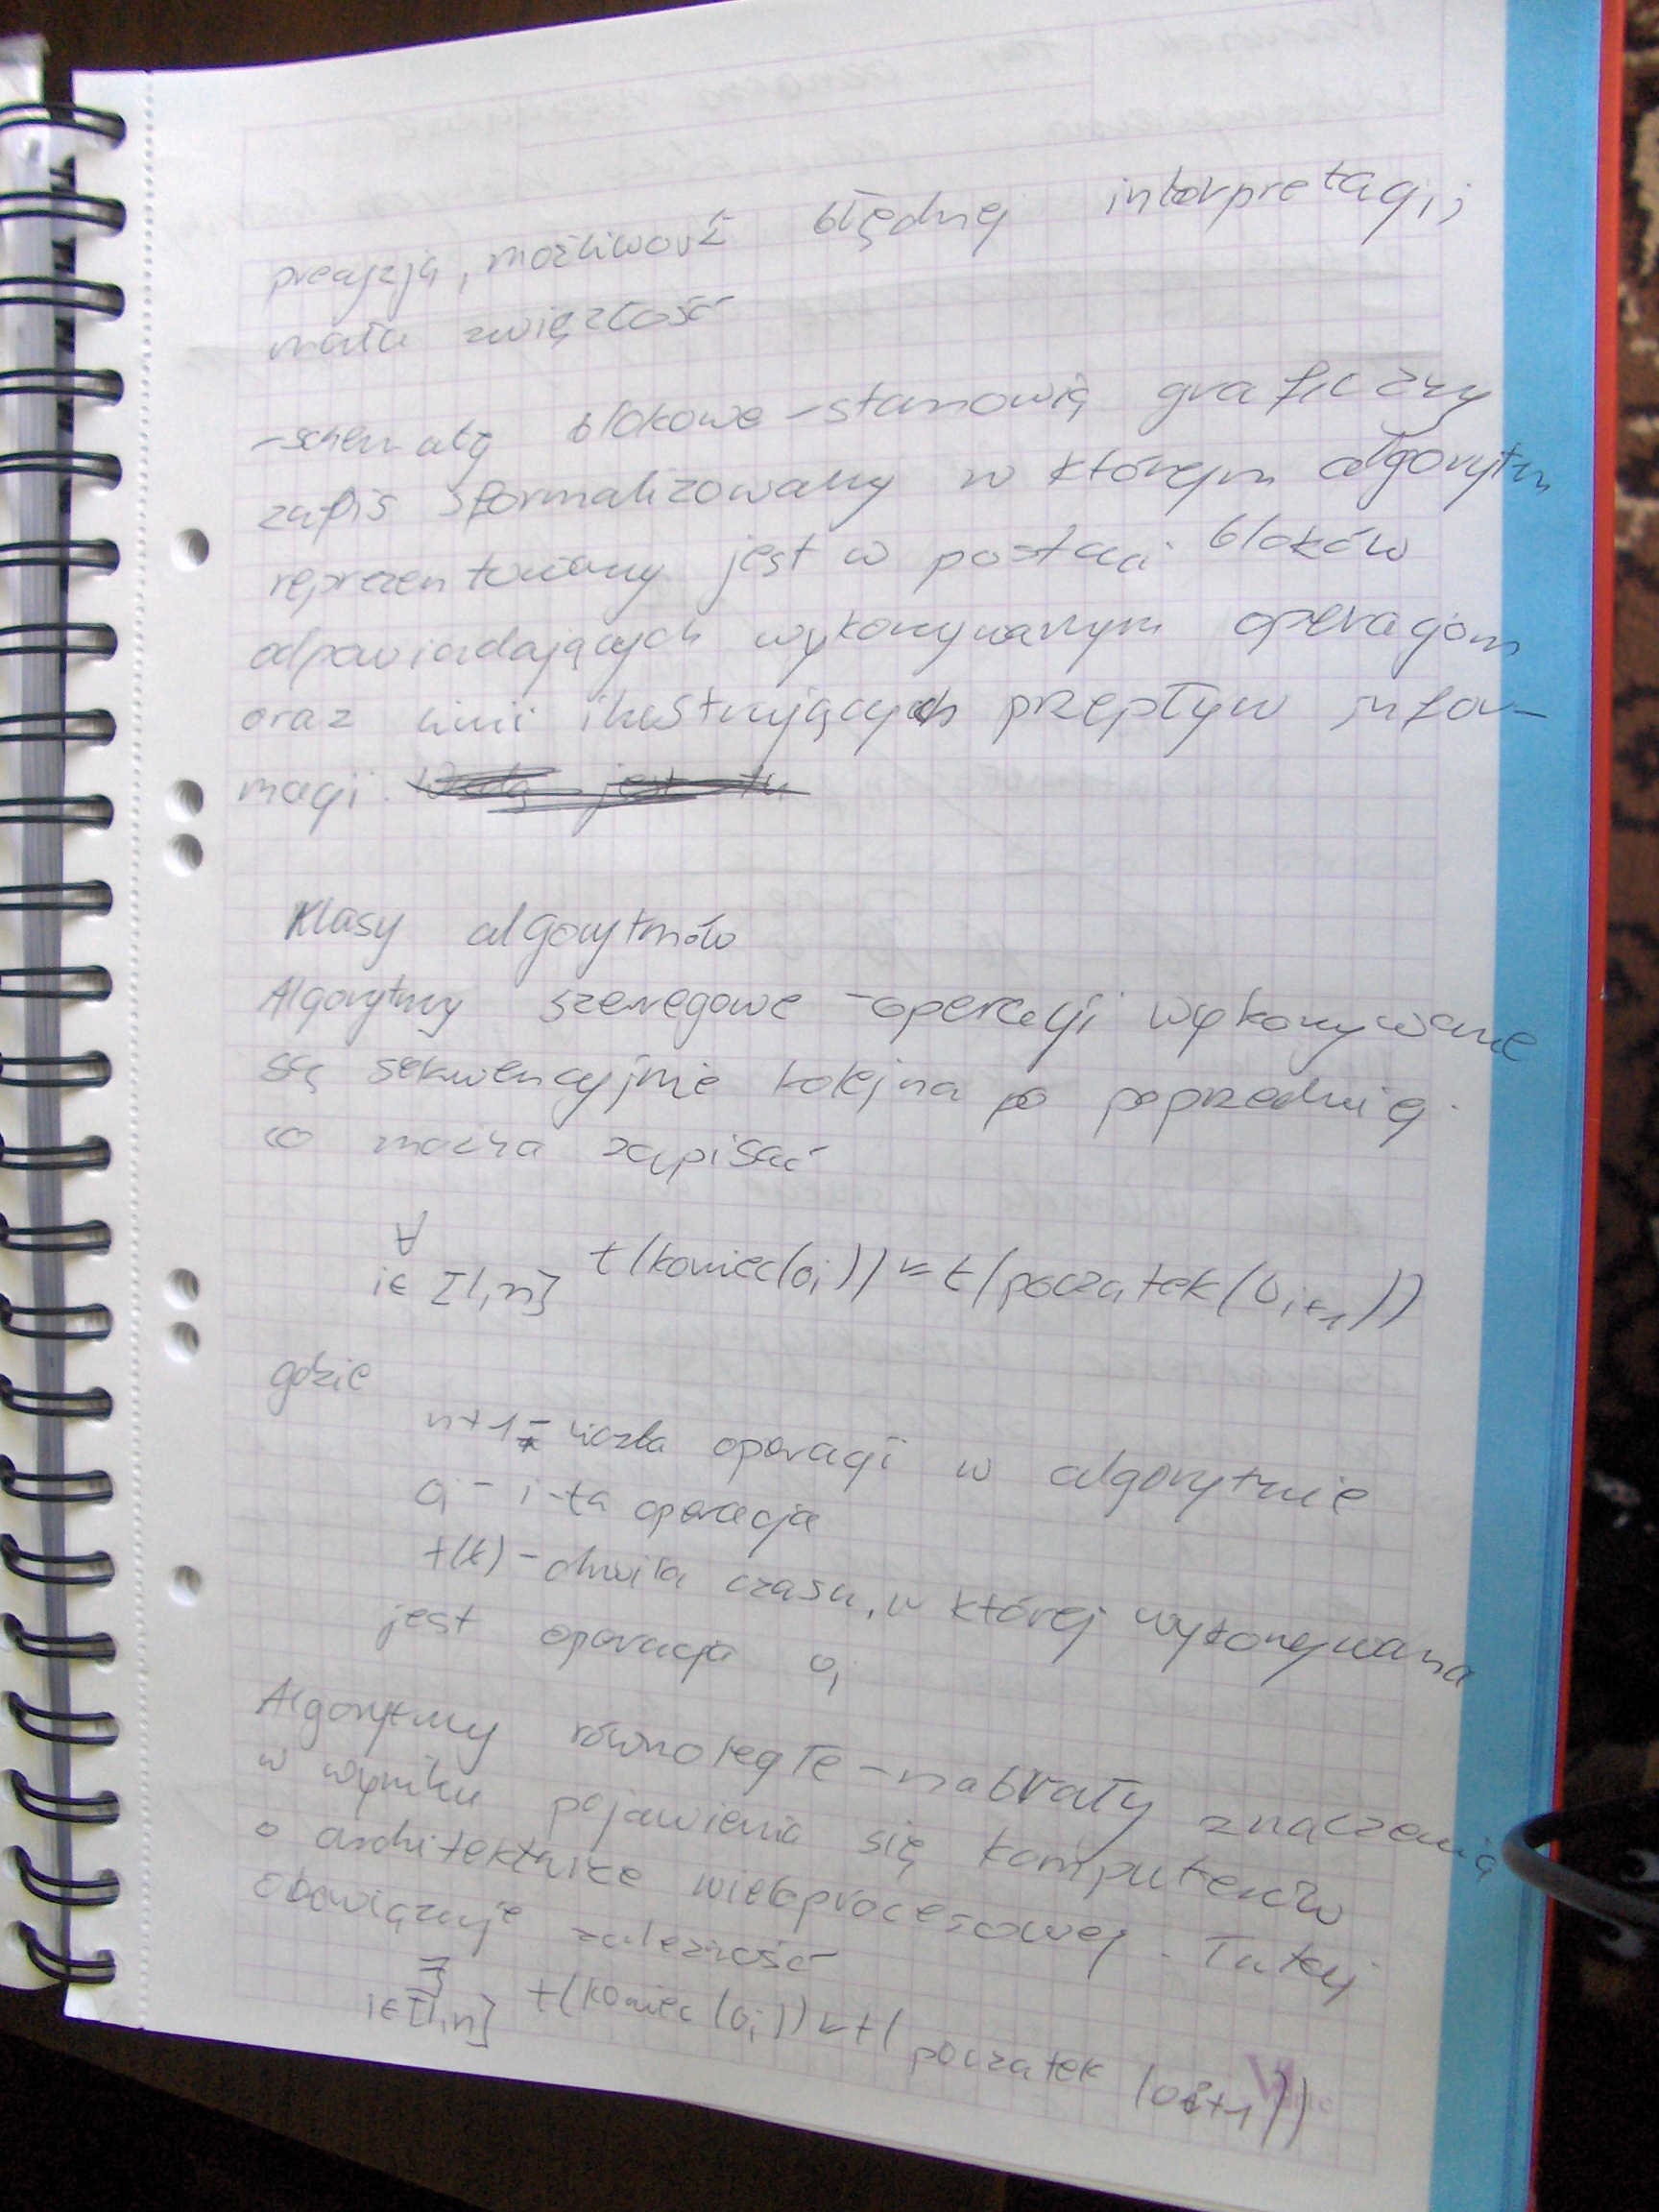 precyzją, możliwość błędnej interpretacji,
mała zwięzłość
-schematy blokowe - stanowią graficzny
zapis sformalizowany w którym algorytm
reprezentowany jest w postaci bloków
odpowiadających wykonywanym operacjom
oraz linii ilustrujących przepływ infor-
macji.
Klasy algorytmów
Algorytmy szeregowe - operacji wykonywane
są sekwencyjnie kolejna po poprzedniej
co można zapisać
∀
i∈[1,n] t(koniec(oi)) ≤ t(początek(oi+1))
gdzie
n+1 - liczba operacji w algorytmie
oi - i-ta operacja
t(x) - chwila czasu, w której wykonywana
jest operacja oi
Algorytmy równoległe - nabrały znaczenia
w wyniku pojawienia się komputerów
o architekturze wieloprocesowej. Tutaj
obowiązuje zależność
∃
i∈[1,n] t(koniec(oi)) ≤ t(początek (oi+1))